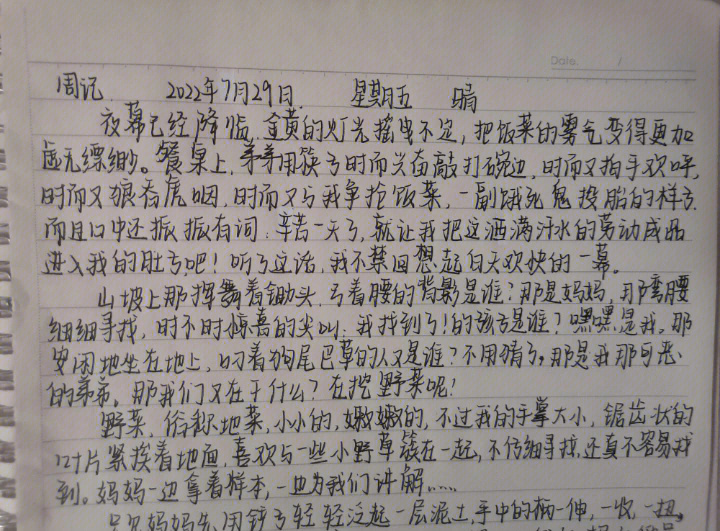 Date.      /
周记      2022年7月29日      星期五   晴
夜幕已经降临,金黄的灯光摇曳不定,把饭菜的雾气变得更加
虚无缥缈。餐桌上,弟弟用筷子时而兴奋敲打碗边,时而又拍手欢呼,
时而又狼吞虎咽,时而又与我争抢饭菜,一副饿死鬼投胎的样子,
而且口中还振振有词:辛苦一天了,就让我把这洒满汗水的劳动成品
进入我的肚子吧!听了这话,我不禁回想起白天欢快的一幕。
山坡上那挥舞着锄头,弓着腰的背影是谁?那是妈妈,那弯腰
细细寻找,时不时惊喜的尖叫:我找到了!的孩子是谁?嘿嘿,是我。那
安闲地坐在地上,叼着狗尾巴草的人又是谁?不用猜了,那是我那可恶
的弟弟。那我们又在干什么?在挖野菜呢!
野菜,俗称地菜,小小的,嫩嫩的,不过我的手掌大小,锯齿状的
叶片紧挨着地面,喜欢与一些小野草簇在一起,不仔细寻找,还真不容易找
到。妈妈一边拿着样本,一边为我们讲解……
只见妈妈先用铲子轻轻泛起一层泥土,手中的柄一伸,一收,一扭,